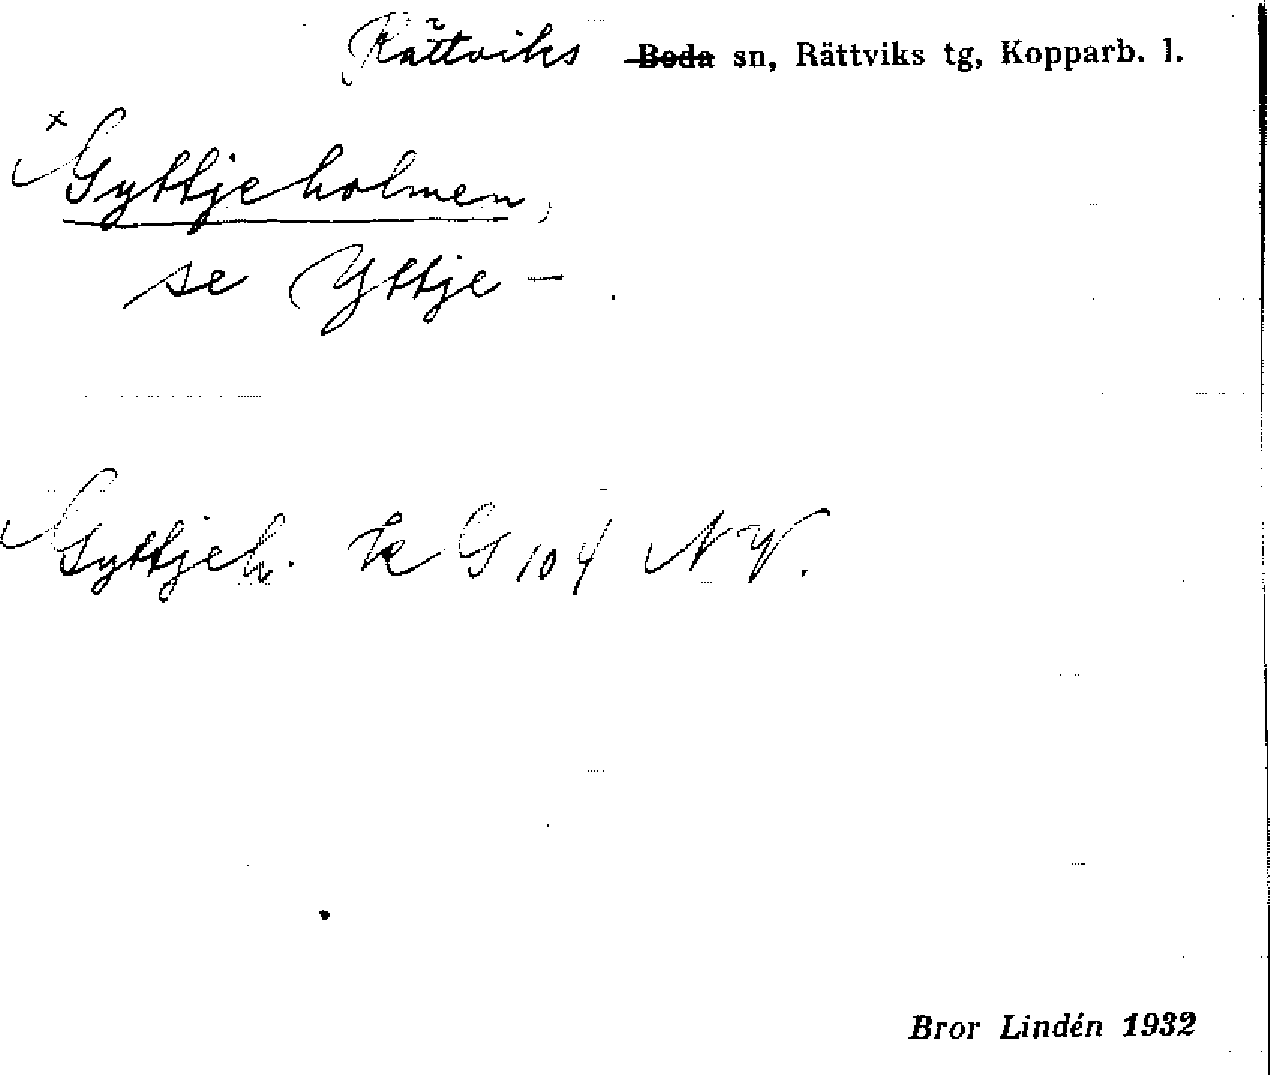 Rättviks Boda sn, Rättviks tg, Kopparb. l.
x
Gyttjeholmen,
se Yttje –
Gyttjeh. k G 104 NV.
Bror Lindén 1932